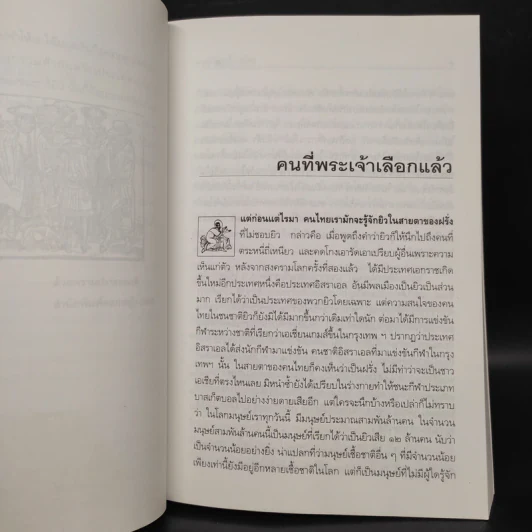 คนที่พระเจ้าเลือกแล้ว
แต่ก่อนแต่ไรมา คนไทยเรามักจะรู้จักยิวในสายตาของฝรั่ง
ที่ไม่ชอบยิว กล่าวคือ เมื่อพูดถึงคำว่ายิวก็ให้นึกไปถึงคนที่
ตระหนี่ถี่เหนียว และคดโกงเอารัดเอาเปรียบผู้อื่นเพราะความ
เห็นแก่ตัว หลังจากสงครามโลกครั้งที่สองแล้ว ได้มีประเทศเอกราชเกิด
ขึ้นใหม่อีกประเทศหนึ่งคือประเทศอิสราเอล อันมีพลเมืองเป็นยิวเป็นส่วน
มาก เรียกได้ว่าเป็นประเทศของพวกยิวโดยเฉพาะ แต่ความสนใจของคน
ไทยในชนชาติยิวก็ยังมิได้มีมากขึ้นกว่าเดิมเท่าใดนัก ต่อมาได้มีการแข่งขัน
กีฬาระหว่างชาติที่เรียกว่าเอเชี่ยนเกมส์ขึ้นในกรุงเทพ ฯ ปรากฏว่าประเทศ
อิสราเอลได้ส่งนักกีฬามาแข่งขัน คนชาติอิสราเอลที่มาแข่งขันกีฬาในกรุง
เทพฯ นั้น ในสายตาของคนไทยก็คงเห็นว่าเป็นฝรั่ง ไม่มีท่าว่าจะเป็นชาว
เอเชียที่ตรงไหนเลย มีหน้าซ้ำยังได้เปรียบในร่างกายทำให้ชนะกีฬาประเภท
บาสเก็ตบอลไปอย่างง่ายดายเสียอีก แต่ใครจะนึกบ้างหรือเปล่าก็ไม่ทราบ
ว่า ในโลกมนุษย์เราทุกวันนี้ มีมนุษย์ประมาณสามพันล้านคน ในจำนวน
มนุษย์สามพันล้านคนนี้เป็นมนุษย์ที่เรียกได้ว่าเป็นยิวเสีย ๑๒ ล้านคน นับว่า
เป็นจำนวนน้อยอย่างยิ่ง น่าแปลกที่ว่ามนุษย์เชื้อชาติอื่น ๆ ที่มีจำนวนน้อย
เพียงเท่านี้ยังมีอยู่อีกหลายเชื้อชาติในโลก แต่ก็เป็นมนุษย์ที่ไม่มีผู้ใดรู้จัก